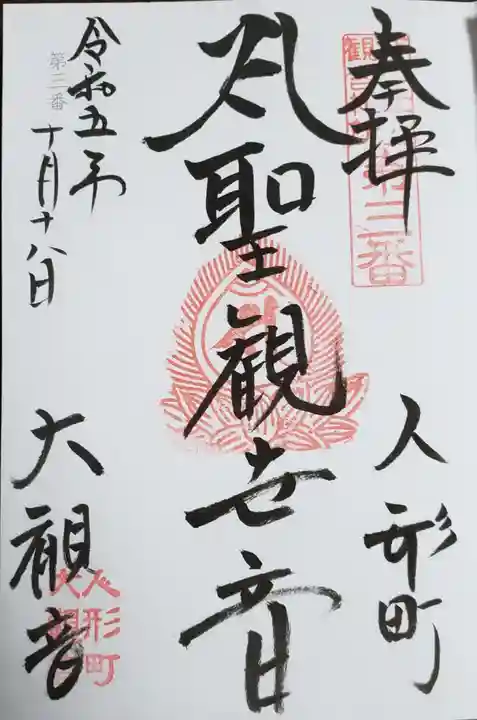 奉拝
第三番
人形町
聖観世音
令和五年
十月十八日
第三番
大観音
人形町
大観音